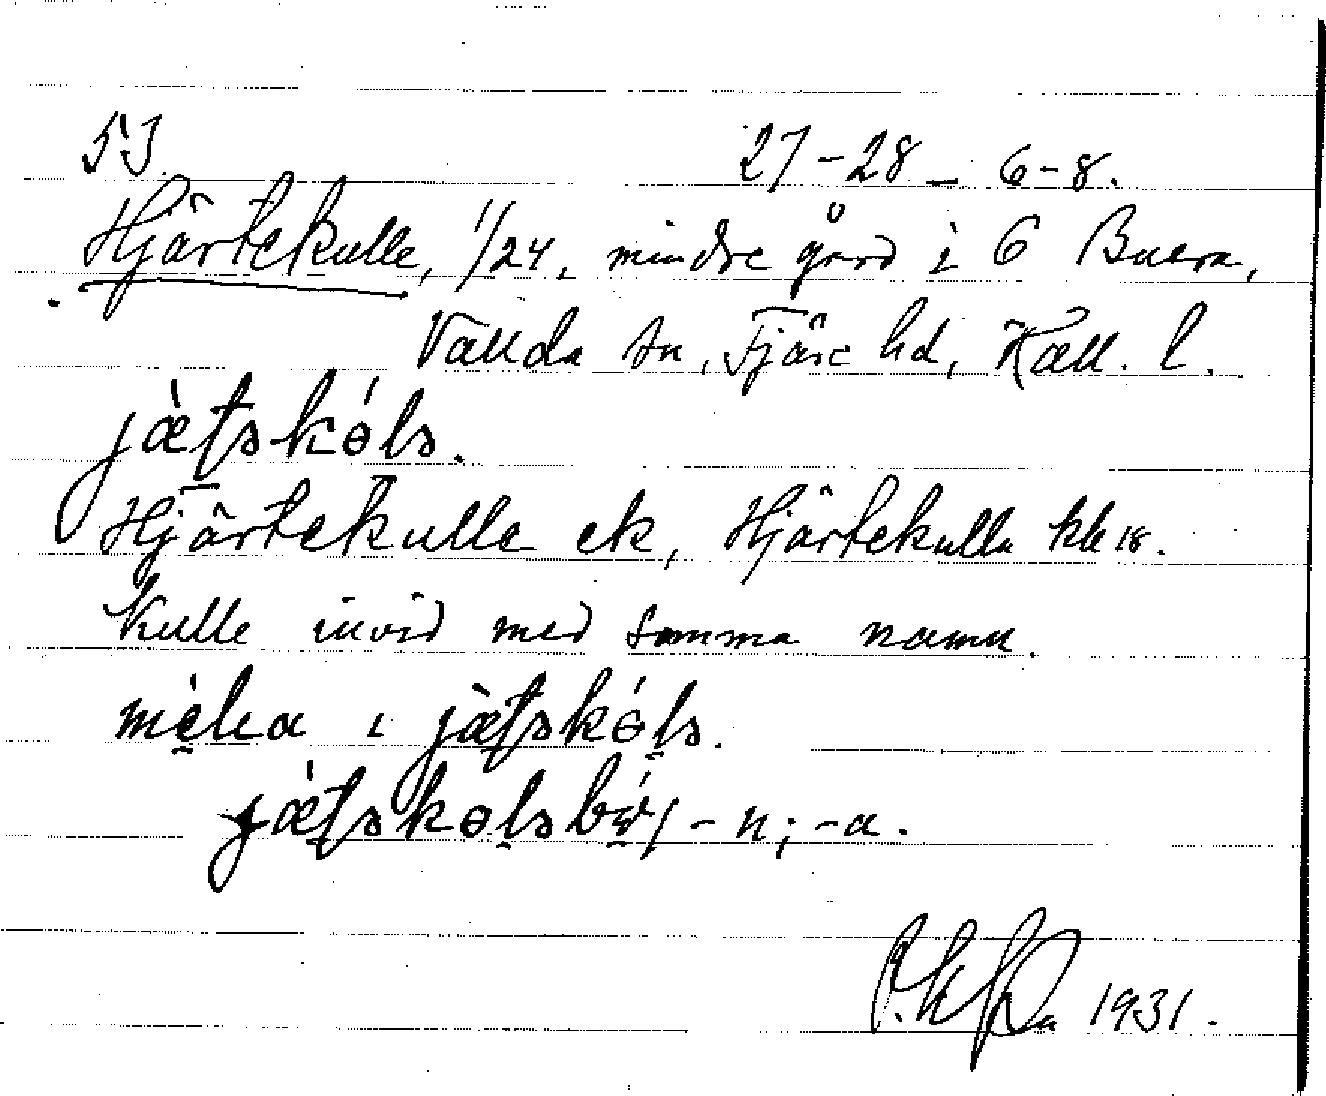 53 27-28 - 6-8.
Hjärtekulle, 1/24, mindre gård i 6 Buera,
Vallda sn, Fjäre hd, Hall. l.
jæ̀tskóls.
Hjärtekulle ek, Hjärtekulla kk 18.
Kulle invid med samma namn.
mèla i jæ̀tskóls.
jæ̀tskɵlsbẃ, -n; -a.
1931.